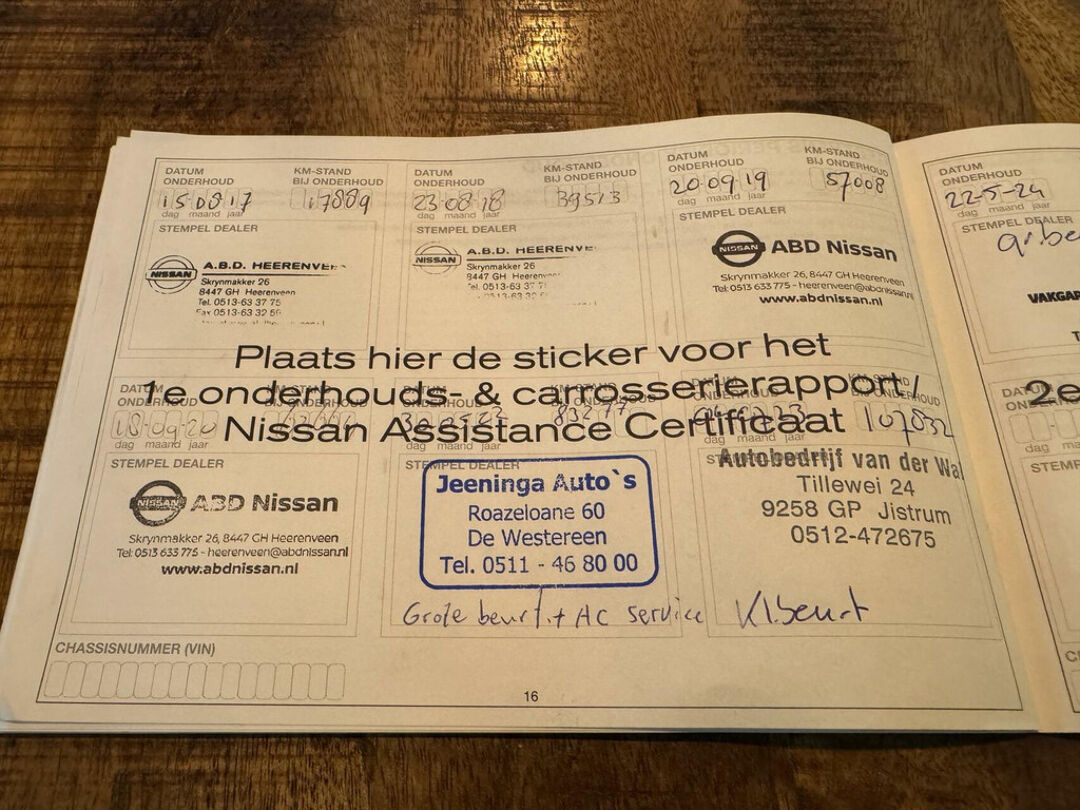 DATUM ONDERHOUD
KM-STAND BIJ ONDERHOUD
15 08 17
17889
dag maand jaar
STEMPEL DEALER
NISSAN
A.B.D. HEERENVE
Skrynmakker 26
8447 GH Heerenveen
Tel. 0513-63 37 75
Fax 0513-63 32 56
DATUM ONDERHOUD
KM-STAND BIJ ONDERHOUD
23-08-18
39513
dag maand jaar
STEMPEL DEALER
NISSAN
A.B.D. HEERENVE
Skrynmakker 26
8447 GH Heerenveen
Tel. 0513-63 37 75
DATUM ONDERHOUD
KM-STAND BIJ ONDERHOUD
20-09-19
57008
dag maand jaar
STEMPEL DEALER
NISSAN ABD Nissan
Skrynmakker 26, 8447 GH Heerenveen
Tel: 0513 633 775 - heerenveen@abdnissan.nl
www.abdnissan.nl
Plaats hier de sticker voor het
1e onderhouds- & carrosserierapport /
Nissan Assistance Certificaat
DATUM ONDERHOUD
KM-STAND BIJ ONDERHOUD
18-09-20
dag maand jaar
STEMPEL DEALER
NISSAN ABD Nissan
Skrynmakker 26, 8447 GH Heerenveen
Tel: 0513 633 775 - heerenveen@abdnissan.nl
www.abdnissan.nl
DATUM ONDERHOUD
KM-STAND BIJ ONDERHOUD
83277
dag maand jaar
STEMPEL DEALER
Jeeninga Auto`s
Roazeloane 60
De Westereen
Tel. 0511 - 46 80 00
Grote beurt + AC service
107832
dag maand jaar
Autobedrijf van der Wa
Tillewei 24
9258 GP Jistrum
0512-472675
Kl. beurt
CHASSISNUMMER (VIN)
16
DATUM ONDERHOUD
22-5-24
dag maand jaar
STEMPEL DEALER
gr. be
VAKGAR
2e
dag
STEMP